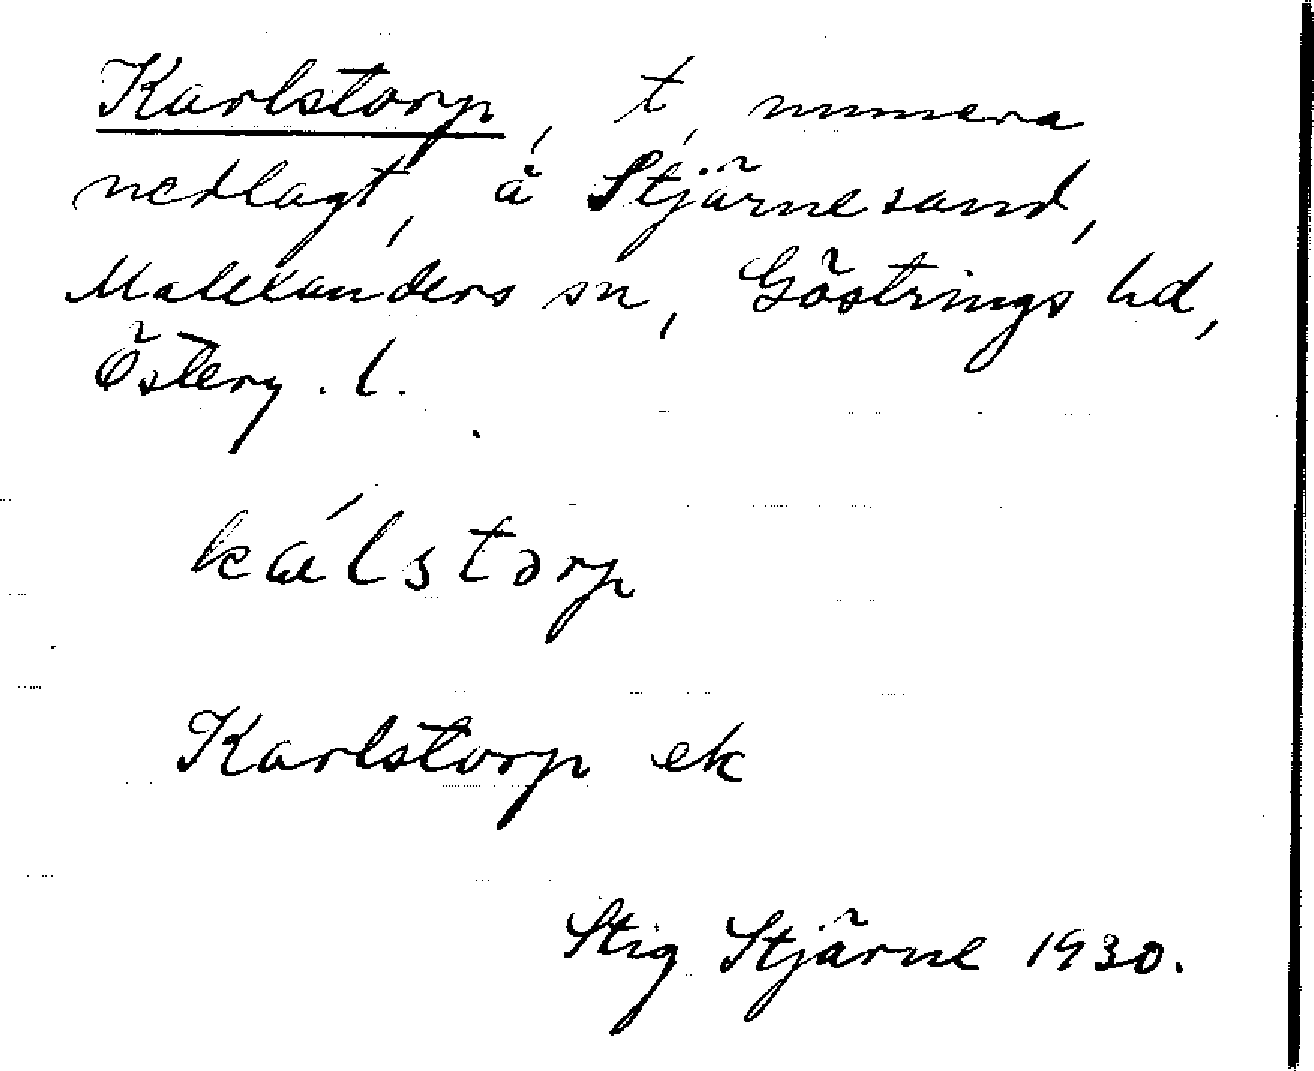 Karlstorp, t, numera
nedlagt, å Stjärnesand,
Malexanders sn, Göstrings hd,
Österg. l.
kálstorp
Karlstorp ek
Stig Stjärne 1930.